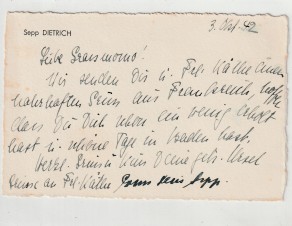 Sepp DIETRICH
3. Okt. 42
Liebe Grossmama!
Wir senden Dir u. Frl. Käthe einen
nahrhaften Gruss aus Frankreich, hoffe
dass Du Dich schon ein wenig erholt
hast u. schöne Tage in Baden hast.
Herzl.
Grüsse an Frl. Käthe Sepp.